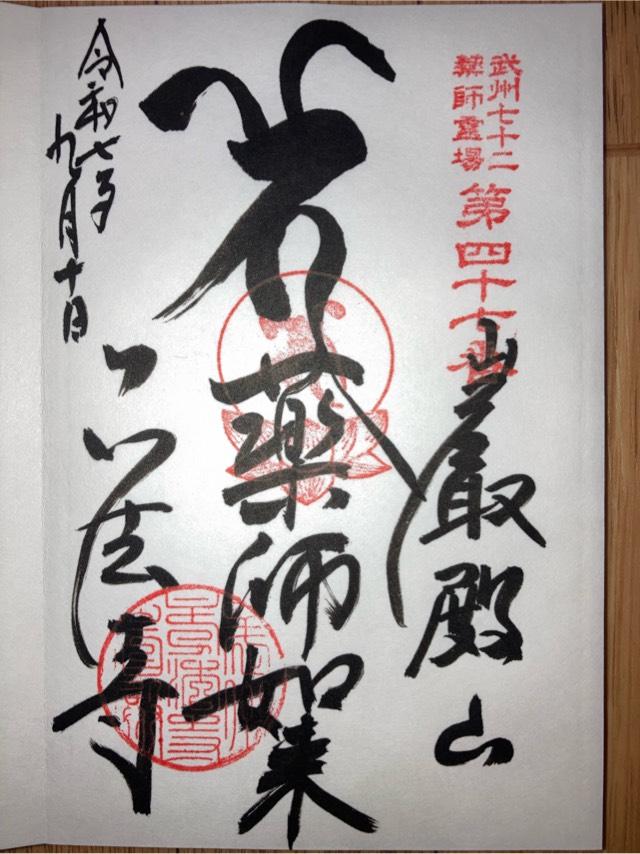 武州七十二
薬師霊場
第四十七番
巌殿山
薬師如来
正法寺
令和七年
九月十日